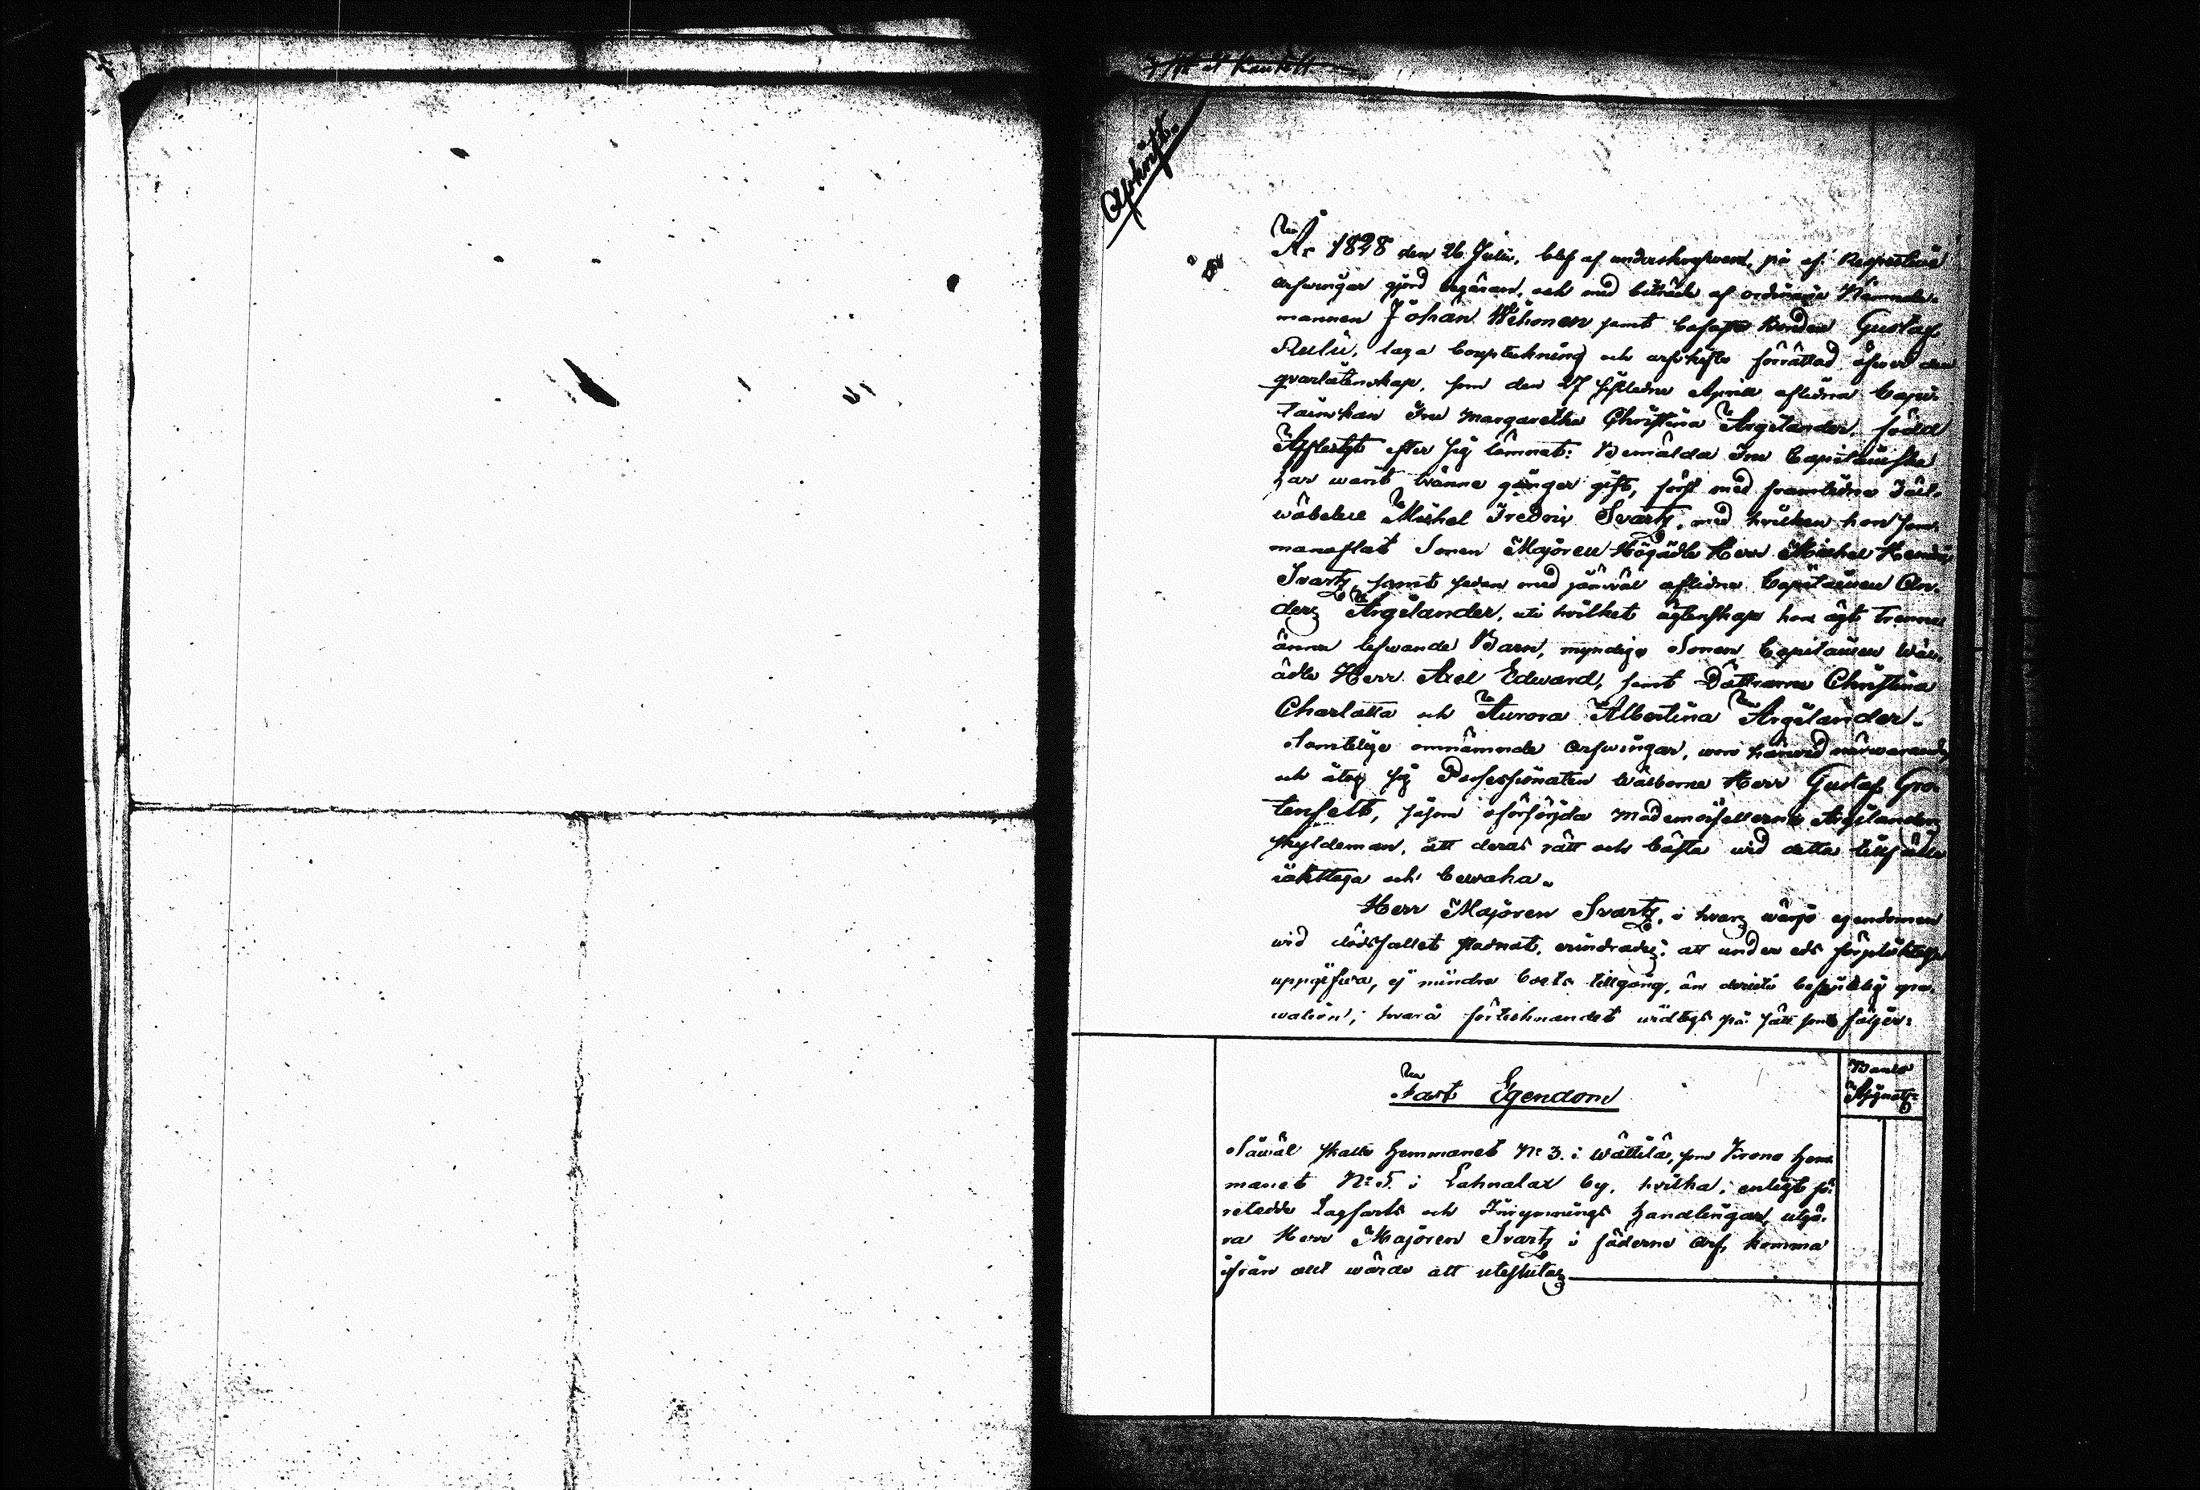 Afskrift.
År 1828 den 26 Julii, blef af underskrefvend, på af Respective
arfwingar gjord begäran, och med biträde af ordinarie Nämnde-
mannen Johan Wihonen samt Bonden Gustaf
Aulii, laga bouptekning och arfskifte förrättad öfwer den
qvarlåtenskap, som den 27 sistledne Aprill aflidna Capi-
tainskan Fru Margaretha Christina Argilander, född
Affleckt efter sig lämnat: Bemälda Fru Capitainska
har warit tvänne gånger gift, först med framledne Fält-
wäbelen Michel Fredric Svartz, med hvilken hon sam-
manaflat Sonen Majoren Högädle Herr Michel Hendric
Svartz, samt sedan med jämväl aflidne Capitainen An-
ders Argilander, uti hvilket ägtenskap hon ägt trenne
ännu lefwande Barn, myndige Sonen Capitainen Wäl-
ädle Herr Axel Edward, samt Döttrarne Christina
Charlotta och Aurora Albertina Argilander.
Samtelige omnämnde arfwingar, woro härwid närwarande,
och åtog sig Possessionaten Wälborne Herr Gustaf Gro-
tenfelt, såsom oförsörjda Mademoisellerne Argilanders
skyldeman, att deras rätt och bästa wid detta tillfälle
iakttaga och bewaka.
Herr Majoren Svartz, i hvars wärjo egendomen
wid dödsfallet stadnat, erindrades: att under eds förpliktelse
uppgifwa, ej mindre boets tillgång, än deruti befintlig gra-
wation; hvarå förtecknandet widtogs på sätt som följer:
Fast Egendom
Banco
Assignatz:
Såwäl skatte Hemmanet No 3. i Wättilä, som Krono Hem-
manet No 5. i Lahnalax by, hvilka, enligt fö-
retedde Lagfarts och Inrymnings Handlingar, utgö-
ra Herr Majoren Svartz's fäderne arf, komma
ifrån allt wärde att uteslutas